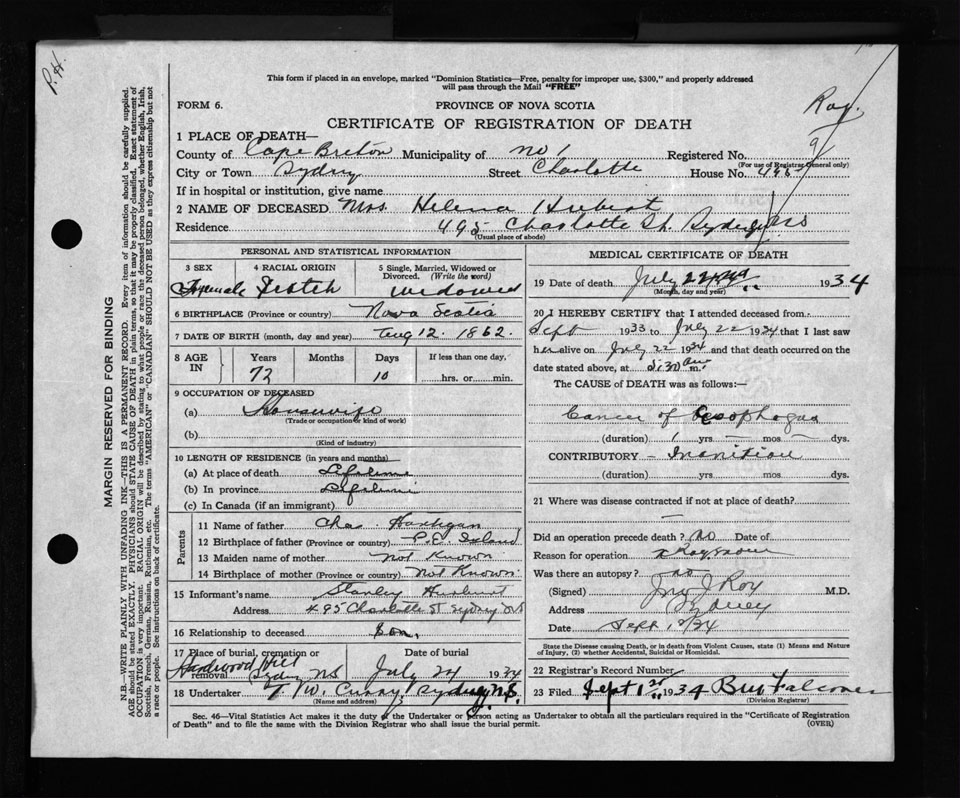 P. H.
This form if placed in an envelope, marked "Dominion Statistics—Free, penalty for improper use, $300," and properly addressed
will pass through the Mail "FREE"
FORM 6.
PROVINCE OF NOVA SCOTIA
Roy.
CERTIFICATE OF REGISTRATION OF DEATH
1 PLACE OF DEATH—
County of Cape Breton Municipality of no 1 Registered No.
(For use of Registrar General only)
City or Town Sydney Street Charlotte House No. 495
If in hospital or institution, give name
2 NAME OF DECEASED Mrs. Helena
Residence 495 Charlotte St. Sydney NS
(Usual place of abode)
PERSONAL AND STATISTICAL INFORMATION
3 SEX 4 RACIAL ORIGIN 5 Single, Married, Widowed or Divorced. (Write the word)
Female Scotch widowed
6 BIRTHPLACE (Province or country) Nova Scotia
7 DATE OF BIRTH (month, day and year) Aug 12. 1862.
8 AGE IN Years Months Days If less than one day,
72 10 hrs. or min.
9 OCCUPATION OF DECEASED
(a) Housewife
(Trade or occupation or kind of work)
(b)
(Kind of industry)
10 LENGTH OF RESIDENCE (in years and months)
(a) At place of death Lifetime
(b) In province Lifetime
(c) In Canada (if an immigrant)
Parents
11 Name of father Chas. Hartigan
12 Birthplace of father (Province or country) P.E. Island
13 Maiden name of mother Not Known
14 Birthplace of mother (Province or country) Not Known.
15 Informant's name Stanley
Address 495 Charlotte St Sydney NS
16 Relationship to deceased Son.
17 Place of burial, cremation or removal Date of burial
Hardwood Hill Sydney NS July 24 1934
18 Undertaker T. W. Curry, Sydney, N.S.
(Name and address)
MEDICAL CERTIFICATE OF DEATH
19 Date of death July 22nd 1934
(Month, day and year)
20 I HEREBY CERTIFY that I attended deceased from
Sept 1933 to July 22 1934 that I last saw
her alive on July 22 1934 and that death occurred on the
date stated above, at 5:30 am m.
The CAUSE of DEATH was as follows:—
Cancer of Oesophogus
(duration) 1 yrs — mos — dys.
CONTRIBUTORY — Inanition
(duration) yrs. mos. dys.
21 Where was disease contracted if not at place of death?
Did an operation precede death? no Date of
Reason for operation
Was there an autopsy? no
(Signed) Jno J. Roy M.D.
Address Sydney
Date Sept 1934
State the Disease causing Death, or in death from Violent Causes, state (1) Means and Nature
of Injury, (2) whether Accidental, Suicidal or Homicidal.
22 Registrar's Record Number
23 Filed Sept 1st 1934 Falconer
(Division Registrar)
Sec. 46—Vital Statistics Act makes it the duty of the Undertaker or person acting as Undertaker to obtain all the particulars required in the "Certificate of Registration
of Death" and to file the same with the Division Registrar who shall issue the burial permit. (OVER)
MARGIN RESERVED FOR BINDING
N.B.—WRITE PLAINLY WITH UNFADING INK—THIS IS A PERMANENT RECORD. Every item of information should be carefully supplied.
AGE should be stated EXACTLY. PHYSICIANS should STATE CAUSE OF DEATH in plain terms, so that it may be properly classified. Exact statement of
OCCUPATION is very important. RACIAL ORIGIN will be described by stating to what people or race the deceased person belonged, whether English, Irish,
Scottish, French, German, Russian, Ruthenian, etc. The terms "AMERICAN" or "CANADIAN" SHOULD NOT BE USED as they express citizenship but not
a race or people. See instructions on back of certificate.